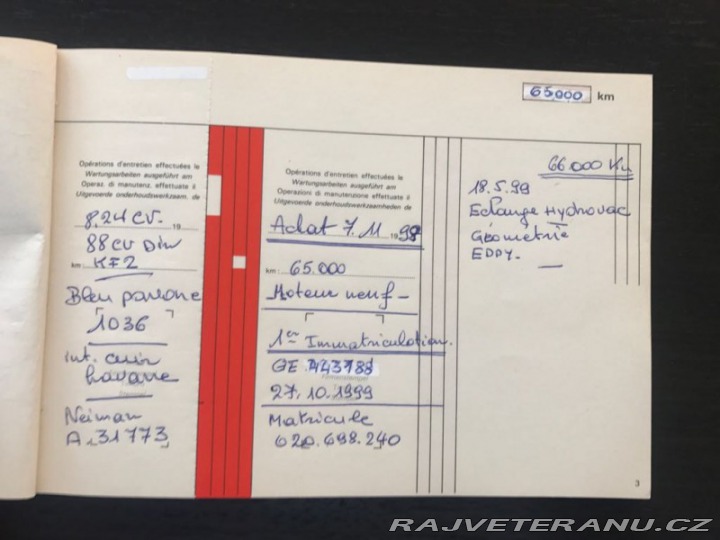 65000 km
Opérations d'entretien effectuées le
Wartungsarbeiten ausgeführt am
Operaz. di manutenz. effettuate il
Uitgevoerde onderhoudswerkzaam. de
8.24 CV. 19
88 CV Din
km: KF2
Bleu pavone
1036
int. cuir
havane
Neiman
A. 31773
Opérations d'entretien effectuées le
Wartungsarbeiten ausgeführt am
Operazioni di manutenzione effettuate il
Uitgevoerde onderhoudswerkzaamheden de
Achat 7. 11 1998
km: 65.000
Moteur neuf -
1re Immatriculation.
GE 443788
27. 10. 1999
Matricule
620.698.240
66.000 Km
18.5.99
Echange Hydrovac
Géométrie
EDDY.
3
RAJVETERANU.CZ